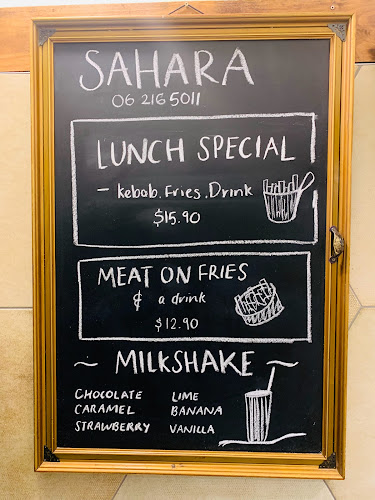 SAHARA
06 216 5011
LUNCH SPECIAL
- kebab. Fries. Drink
$15.90
MEAT ON FRIES
& a drink
$12.90
~ MILKSHAKE ~
CHOCOLATE LIME
CARAMEL BANANA
STRAWBERRY VANILLA